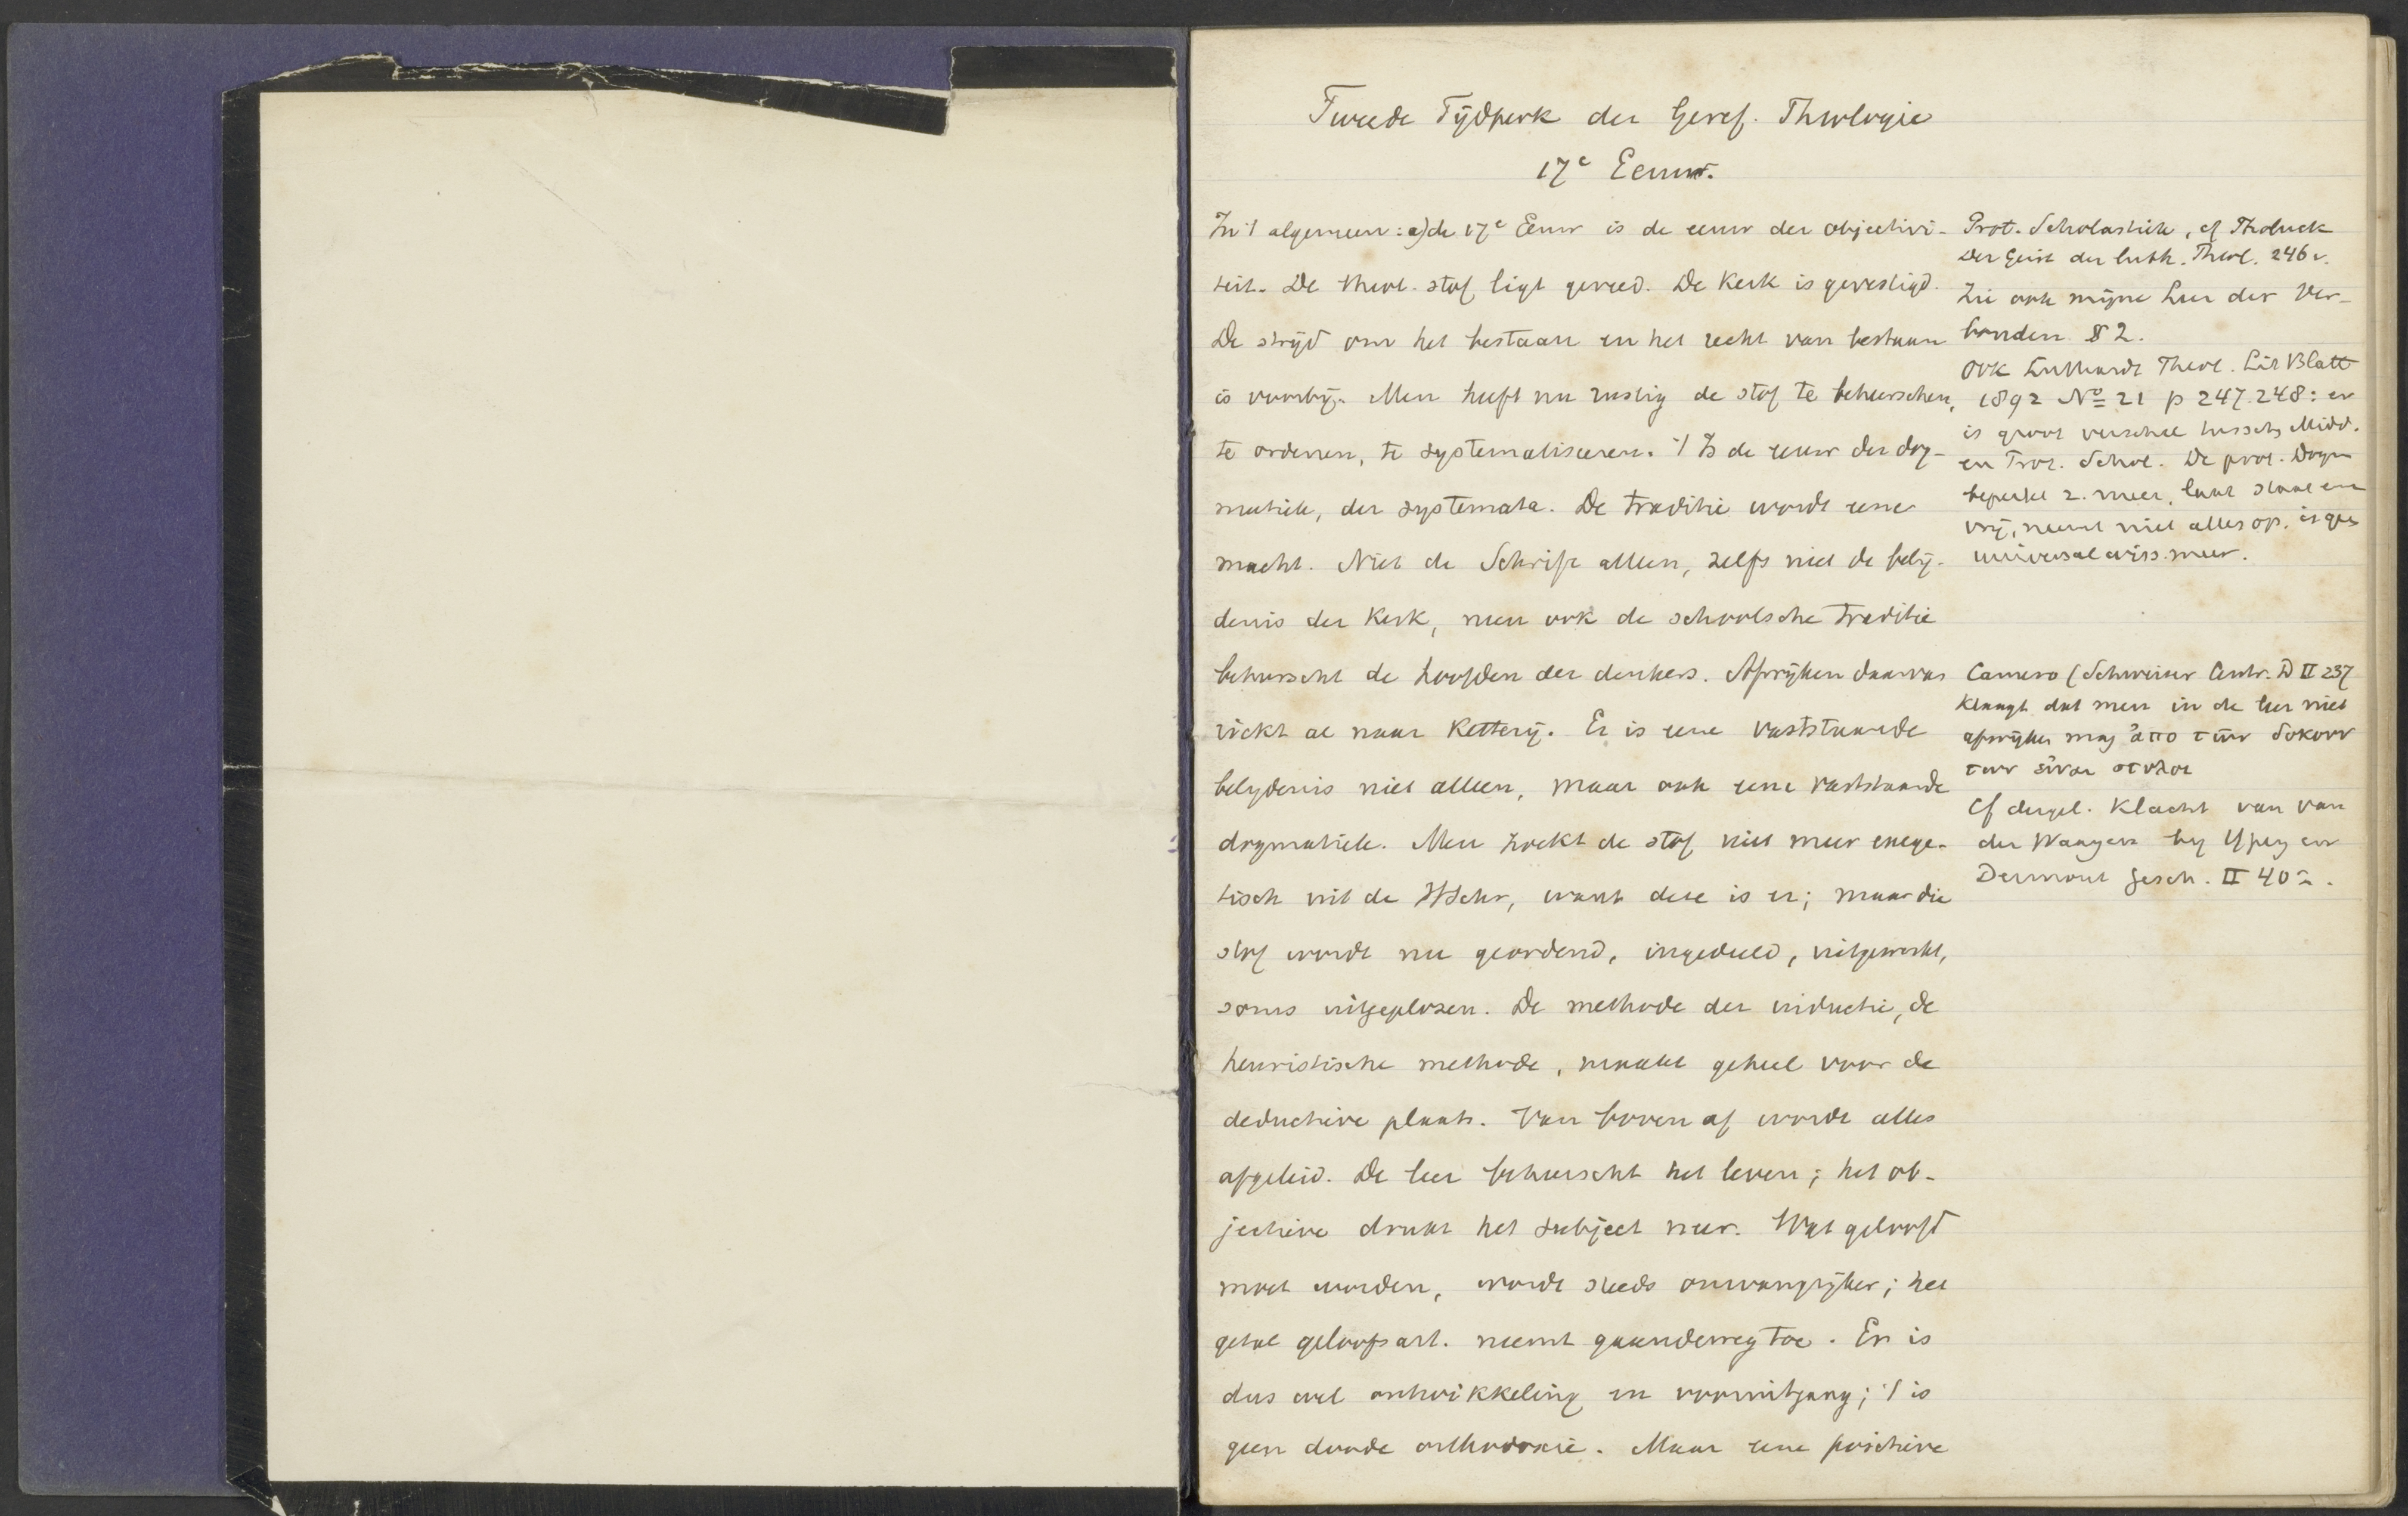 Tweede Tijdperk der Geref. Theologie
17e Eeuw.
In 't algemeen: a) de 17e Eeuw is de eeuw der objectivi-
teit. De theol. stof ligt gereed. De Kerk is gevestigd.
De strijd om het bestaan en het recht van bestaan
is voorbij. Men heeft nu rustig de stof te beheerschen,
te ordenen, te systematiseeren. 't Is de eeuw der dog-
matiek, der systemata. De traditie wordt eene
macht. Niet de Schrift alleen, zelfs niet de belij-
denis der Kerk, neen ook de schoolsche traditie
beheerscht de hoofden der denkers. Afwijken daarvan
riekt al naar Ketterij. Er is eene vaststaande
belydenis niet alleen, maar ook eene vaststaande
dogmatiek. Men zoekt de stof niet meer exege-
tisch uit de HSchr, want deze is er; maar die
stof wordt nu geordend, ingedeeld, uitgewerkt,
soms uitgeplozen. De methode der inductie, de
heuristische methode, maakt geheel voor de
deductieve plaats. Van boven af wordt alles
afgeleid. De leer beheerscht het leven; het ob-
jectieve drukt het subject neer. Wat geloofd
moet worden, wordt steeds omvangrijker; het
getal geloofsart. neemt gaandeweg toe. Er is
dus wel ontwikkeling en vooruitgang; 't is
geen doode orthodoxie. Maar eene positieve
Prot. Scholastiek, cf Tholuck
Der Geist der luth. Theol. 246 v.
Zie ook mijne Leer der Ver-
bonden § 2.
Ook Luthardt Theol. Lit Blatt
1892 No 21 p 247. 248: er
is groot verschil tussch. Midd.
en Prot. Schol. De prot. Dogm
beperkt z. meer, laat staat en
vrij, neemt niet alles op, is geen
universalwiss. meer.
Camero (Schweizer Centr. D II 237
Klaagt dat men in de leer niet
afwijken mag ἀπο των δοκουν
των εἰναι στυλοι
Cf dergel. Klacht van van
der Waeyen by Ypey en
Dermout Gesch. II 402.